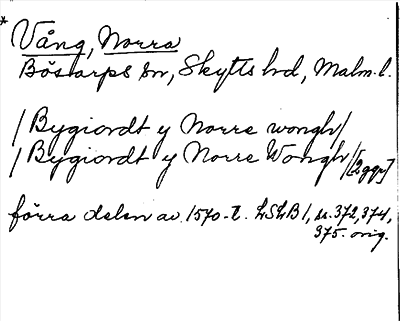 * Vång, Norra
Böstarps sn, Skytts hd, Malm. l.
/ Bygiordt y Norre wongh /
/ Bygiordt y Norre Wongh / [2ggr]
förra delen av 1570-t. LSLB 1, s. 372, 374,
375. orig.